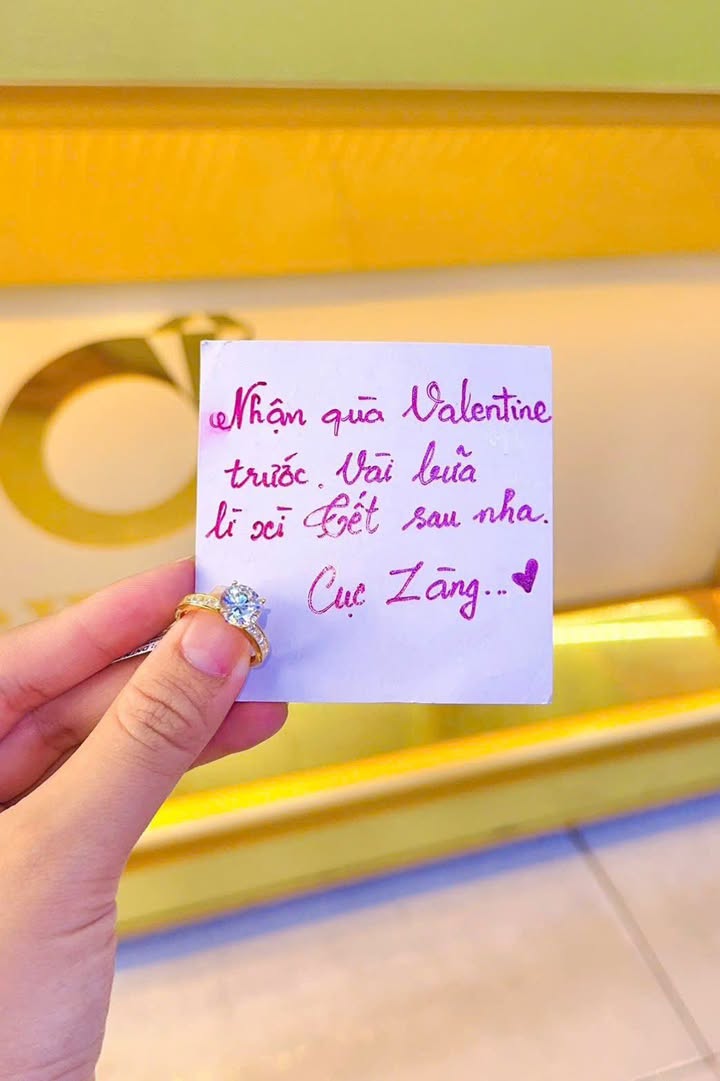 Nhận quà Valentine
trước. Vài bữa
lì xì Tết sau nha.
Cục Zàng...